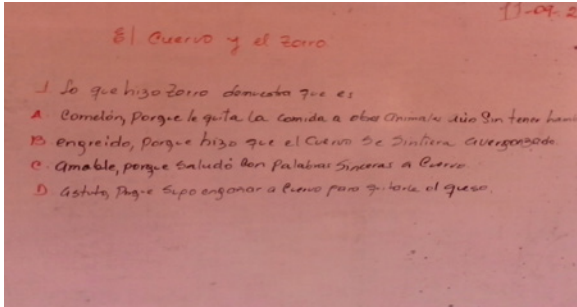 11-09-2
El Cuervo y el Zorro
1 Lo que hizo Zorro demuestra que es
A. Comelón, Porque le quita la comida a otros animales aún sin tener ham
B engreído, porque hizo que el Cuervo se Sintiera avergonzado.
C. amable, porque saludó con Palabras Sinceras a Cuervo
D astuto, Porque Supo engañar a Cuervo para quitarle el queso.